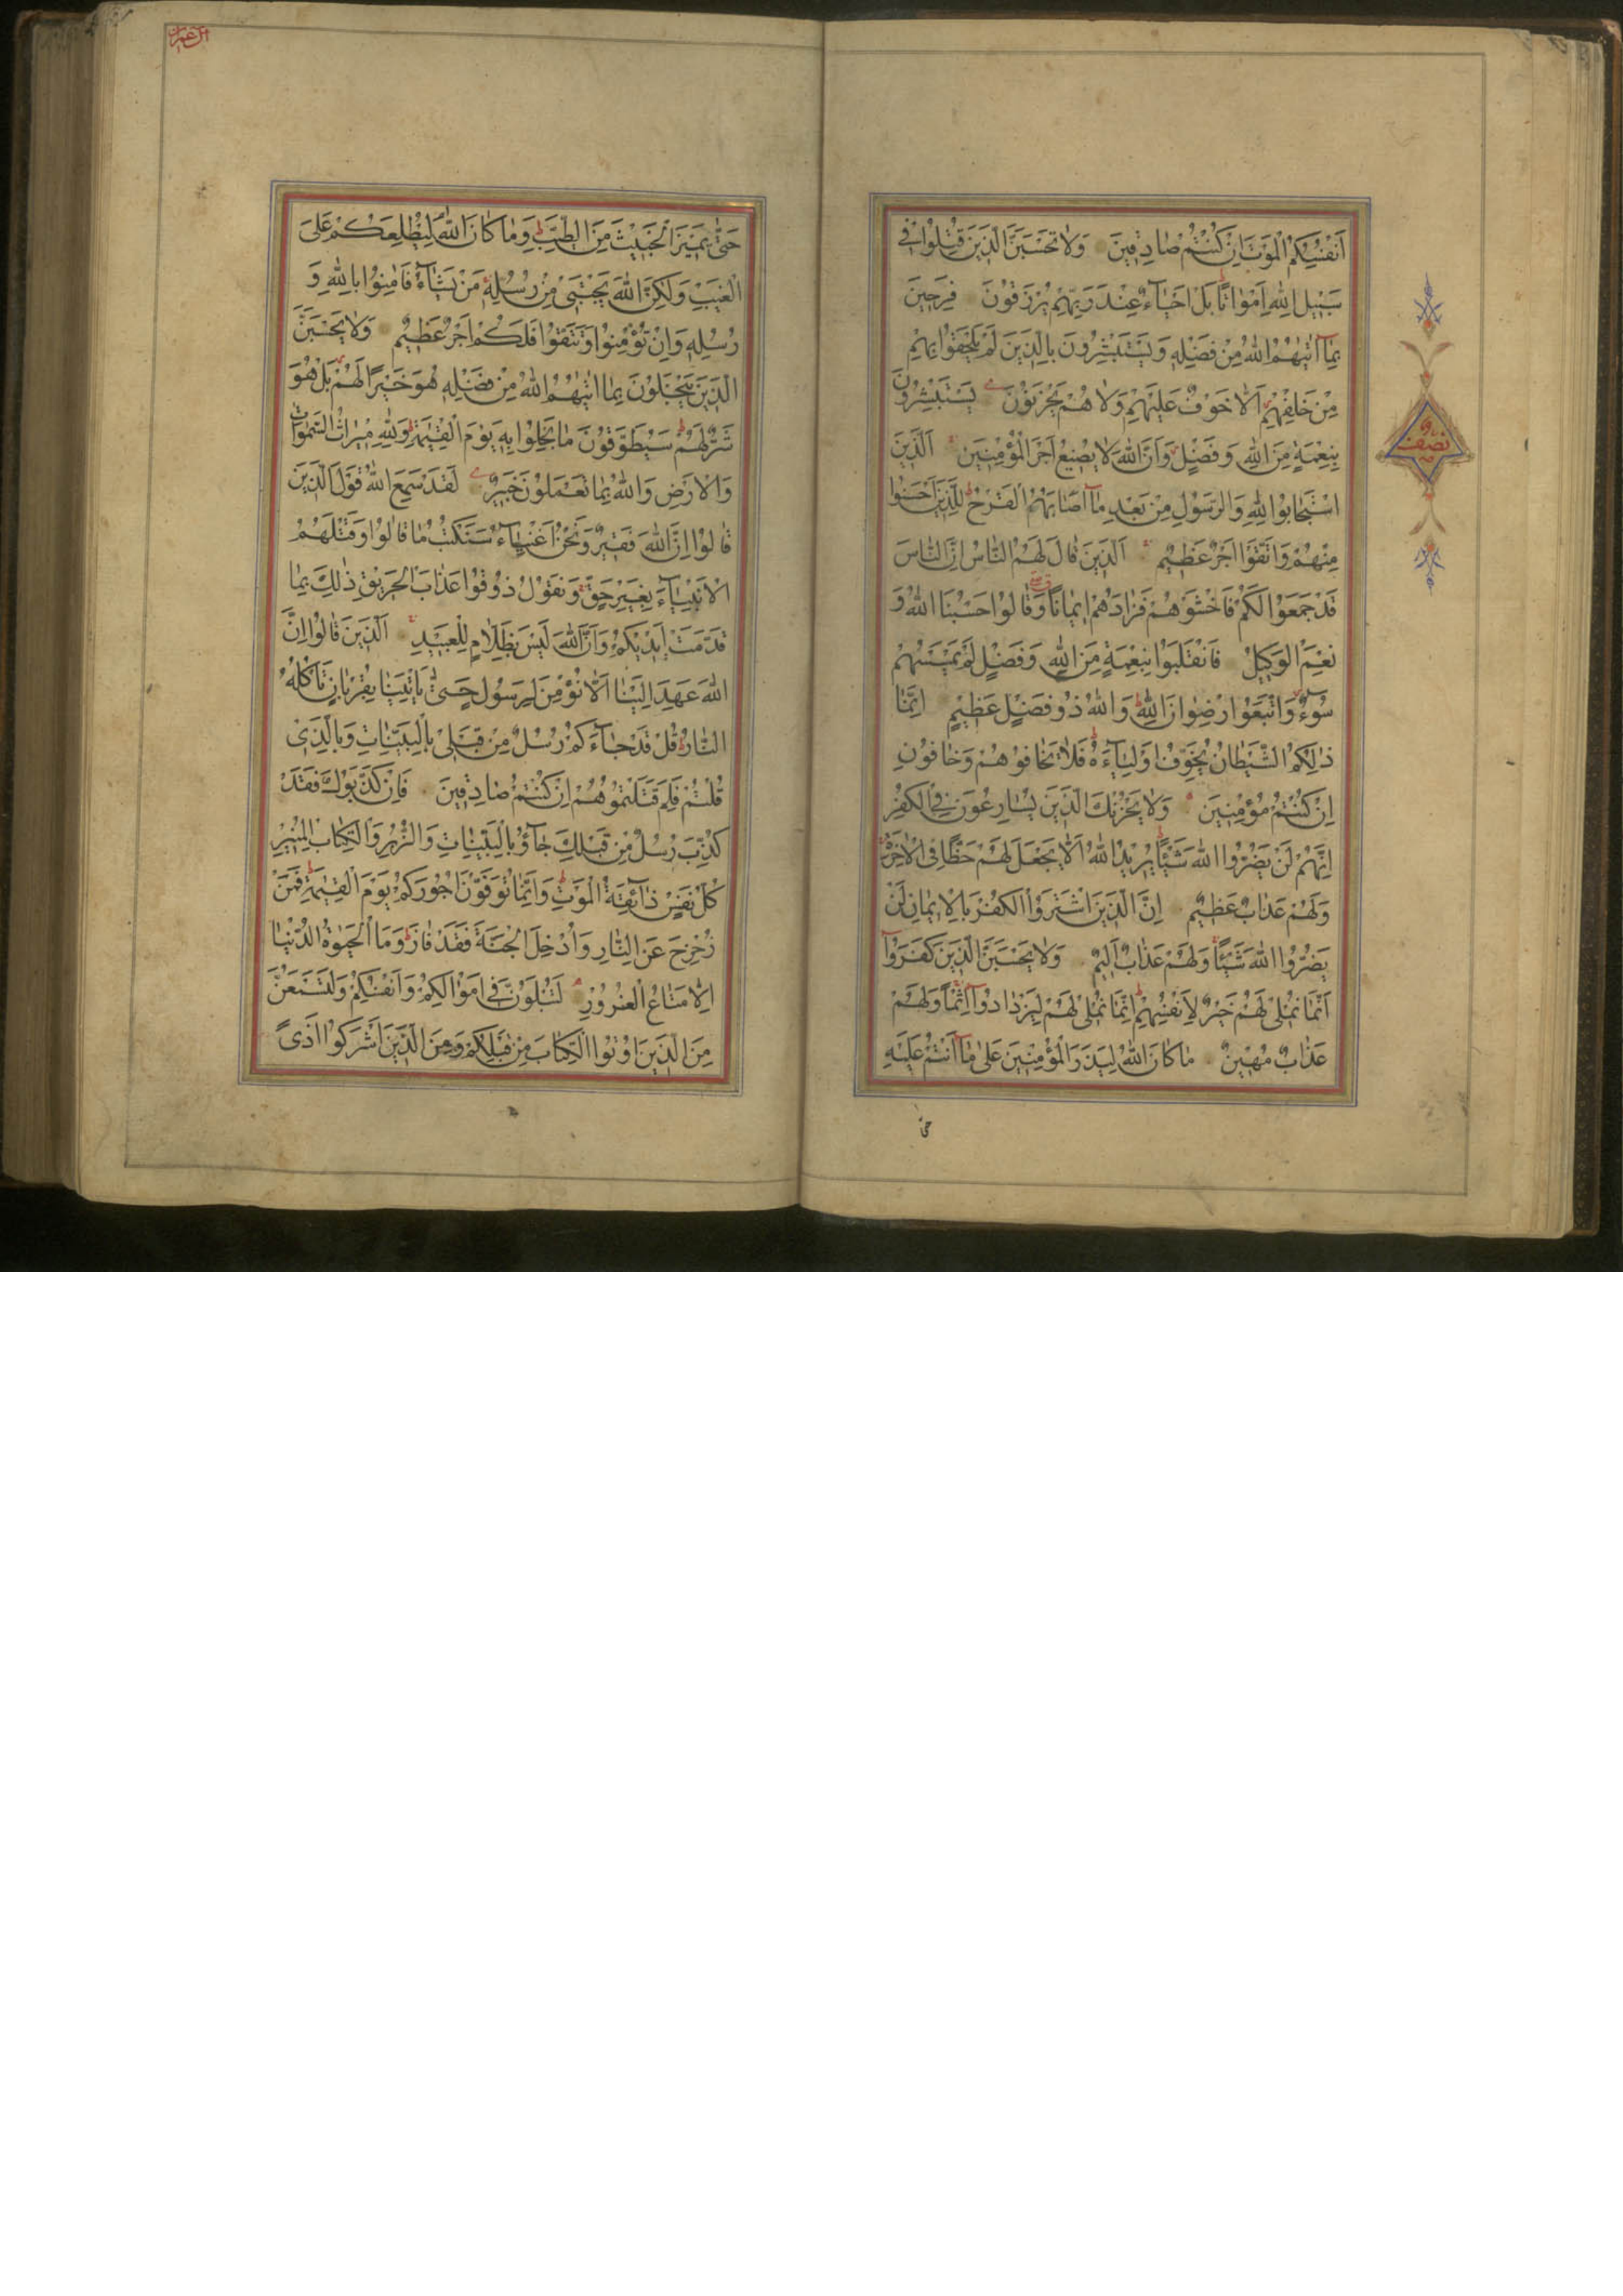 اَنْفُسِكُمُ الْمَوْتَ اِنْ كُنْتُمْ صَادِقِينَ وَلَا تَحْسَبَنَّ الَّذِينَ قُتِلُوا فِي
سَبِيلِ اللّٰهِ اَمْوَاتًا بَلْ اَحْيَآءٌ عِنْدَ رَبِّهِمْ يُرْزَقُونَ فَرِحِينَ
بِمَآ اٰتٰيهُمُ اللّٰهُ مِنْ فَضْلِهِ وَيَسْتَبْشِرُونَ بِالَّذِينَ لَمْ يَلْحَقُوا بِهِمْ
مِنْ خَلْفِهِمْ اَلَّا خَوْفٌ عَلَيْهِمْ وَلَا هُمْ يَحْزَنُونَ يَسْتَبْشِرُونَ
بِنِعْمَةٍ مِنَ اللّٰهِ وَفَضْلٍ وَاَنَّ اللّٰهَ لَا يُضِيعُ اَجْرَ الْمُؤْمِنِينَ اَلَّذِينَ
اسْتَجَابُوا لِلّٰهِ وَالرَّسُولِ مِنْ بَعْدِ مَآ اَصَابَهُمُ الْقَرْحُ لِلَّذِينَ اَحْسَنُوا
مِنْهُمْ وَاتَّقَوْا اَجْرٌ عَظِيمٌ اَلَّذِينَ قَالَ لَهُمُ النَّاسُ اِنَّ النَّاسَ
قَدْ جَمَعُوا لَكُمْ فَاخْشَوْهُمْ فَزَادَهُمْ اِيمَانًا وَقَالُوا حَسْبُنَا اللّٰهُ وَ
نِعْمَ الْوَكِيلُ فَانْقَلَبُوا بِنِعْمَةٍ مِنَ اللّٰهِ وَفَضْلٍ لَمْ يَمْسَسْهُمْ
سُوءٌ وَاتَّبَعُوا رِضْوَانَ اللّٰهِ وَاللّٰهُ ذُو فَضْلٍ عَظِيمٍ اِنَّمَا
ذٰلِكُمُ الشَّيْطَانُ يُخَوِّفُ اَوْلِيَآءَهُ فَلَا تَخَافُوهُمْ وَخَافُونِ
اِنْ كُنْتُمْ مُؤْمِنِينَ وَلَا يَحْزُنْكَ الَّذِينَ يُسَارِعُونَ فِي الْكُفْرِ
اِنَّهُمْ لَنْ يَضُرُّوا اللّٰهَ شَيْئًا يُرِيدُ اللّٰهُ اَلَّا يَجْعَلَ لَهُمْ حَظًّا فِي الْاٰخِرَةِ
وَلَهُمْ عَذَابٌ عَظِيمٌ اِنَّ الَّذِينَ اشْتَرَوُا الْكُفْرَ بِالْاِيمَانِ لَنْ
يَضُرُّوا اللّٰهَ شَيْئًا وَلَهُمْ عَذَابٌ اَلِيمٌ وَلَا يَحْسَبَنَّ الَّذِينَ كَفَرُوٓا
اَنَّمَا نُمْلِي لَهُمْ خَيْرٌ لِاَنْفُسِهِمْ اِنَّمَا نُمْلِي لَهُمْ لِيَزْدَادُوٓا اِثْمًا وَلَهُمْ
عَذَابٌ مُهِينٌ مَا كَانَ اللّٰهُ لِيَذَرَ الْمُؤْمِنِينَ عَلٰى مَآ اَنْتُمْ عَلَيْهِ
حتى
نصف
ال عمران
حَتّٰى يَمِيزَ الْخَبِيثَ مِنَ الطَّيِّبِ وَمَا كَانَ اللّٰهُ لِيُطْلِعَكُمْ عَلَى
الْغَيْبِ وَلٰكِنَّ اللّٰهَ يَجْتَبِي مِنْ رُسُلِهِ مَنْ يَشَآءُ فَاٰمِنُوا بِاللّٰهِ وَ
رُسُلِهِ وَاِنْ تُؤْمِنُوا وَتَتَّقُوا فَلَكُمْ اَجْرٌ عَظِيمٌ وَلَا يَحْسَبَنَّ
الَّذِينَ يَبْخَلُونَ بِمَا اٰتٰيهُمُ اللّٰهُ مِنْ فَضْلِهِ هُوَ خَيْرًا لَهُمْ بَلْ هُوَ
شَرٌّ لَهُمْ سَيُطَوَّقُونَ مَا بَخِلُوا بِهِ يَوْمَ الْقِيٰمَةِ وَلِلّٰهِ مِيرَاثُ السَّمٰوَاتِ
وَالْاَرْضِ وَاللّٰهُ بِمَا تَعْمَلُونَ خَبِيرٌ لَقَدْ سَمِعَ اللّٰهُ قَوْلَ الَّذِينَ
قَالُوا اِنَّ اللّٰهَ فَقِيرٌ وَنَحْنُ اَغْنِيَآءُ سَنَكْتُبُ مَا قَالُوا وَقَتْلَهُمُ
الْاَنْبِيَآءَ بِغَيْرِ حَقٍّ وَنَقُولُ ذُوقُوا عَذَابَ الْحَرِيقِ ذٰلِكَ بِمَا
قَدَّمَتْ اَيْدِيكُمْ وَاَنَّ اللّٰهَ لَيْسَ بِظَلَّامٍ لِلْعَبِيدِ اَلَّذِينَ قَالُوا اِنَّ
اللّٰهَ عَهِدَ اِلَيْنَا اَلَّا نُؤْمِنَ لِرَسُولٍ حَتّٰى يَاْتِيَنَا بِقُرْبَانٍ تَاْكُلُهُ
النَّارُ قُلْ قَدْ جَآءَكُمْ رُسُلٌ مِنْ قَبْلِي بِالْبَيِّنَاتِ وَبِالَّذِي
قُلْتُمْ فَلِمَ قَتَلْتُمُوهُمْ اِنْ كُنْتُمْ صَادِقِينَ فَاِنْ كَذَّبُوكَ فَقَدْ
كُذِّبَ رُسُلٌ مِنْ قَبْلِكَ جَآؤُ بِالْبَيِّنَاتِ وَالزُّبُرِ وَالْكِتَابِ الْمُنِيرِ
كُلُّ نَفْسٍ ذَآئِقَةُ الْمَوْتِ وَاِنَّمَا تُوَفَّوْنَ اُجُورَكُمْ يَوْمَ الْقِيٰمَةِ فَمَنْ
زُحْزِحَ عَنِ النَّارِ وَاُدْخِلَ الْجَنَّةَ فَقَدْ فَازَ وَمَا الْحَيٰوةُ الدُّنْيَا
اِلَّا مَتَاعُ الْغُرُورِ لَتُبْلَوُنَّ فِي اَمْوَالِكُمْ وَاَنْفُسِكُمْ وَلَتَسْمَعُنَّ
مِنَ الَّذِينَ اُوتُوا الْكِتَابَ مِنْ قَبْلِكُمْ وَمِنَ الَّذِينَ اَشْرَكُوا اَذًى